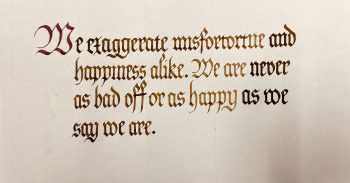 We exaggerate misfortortue and
happiness alike. We are never
as bad off or as happy as we
say we are.